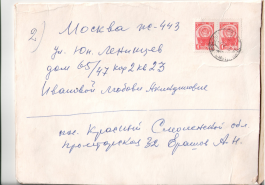 2) Москва ж-443
ул. Юн. Ленинцев
дом 65/47 кор 2 кв 23
Ивановой Любови
пос. Красный Смоленской обл.
Пролетарская 32 Ерашов А.Н.